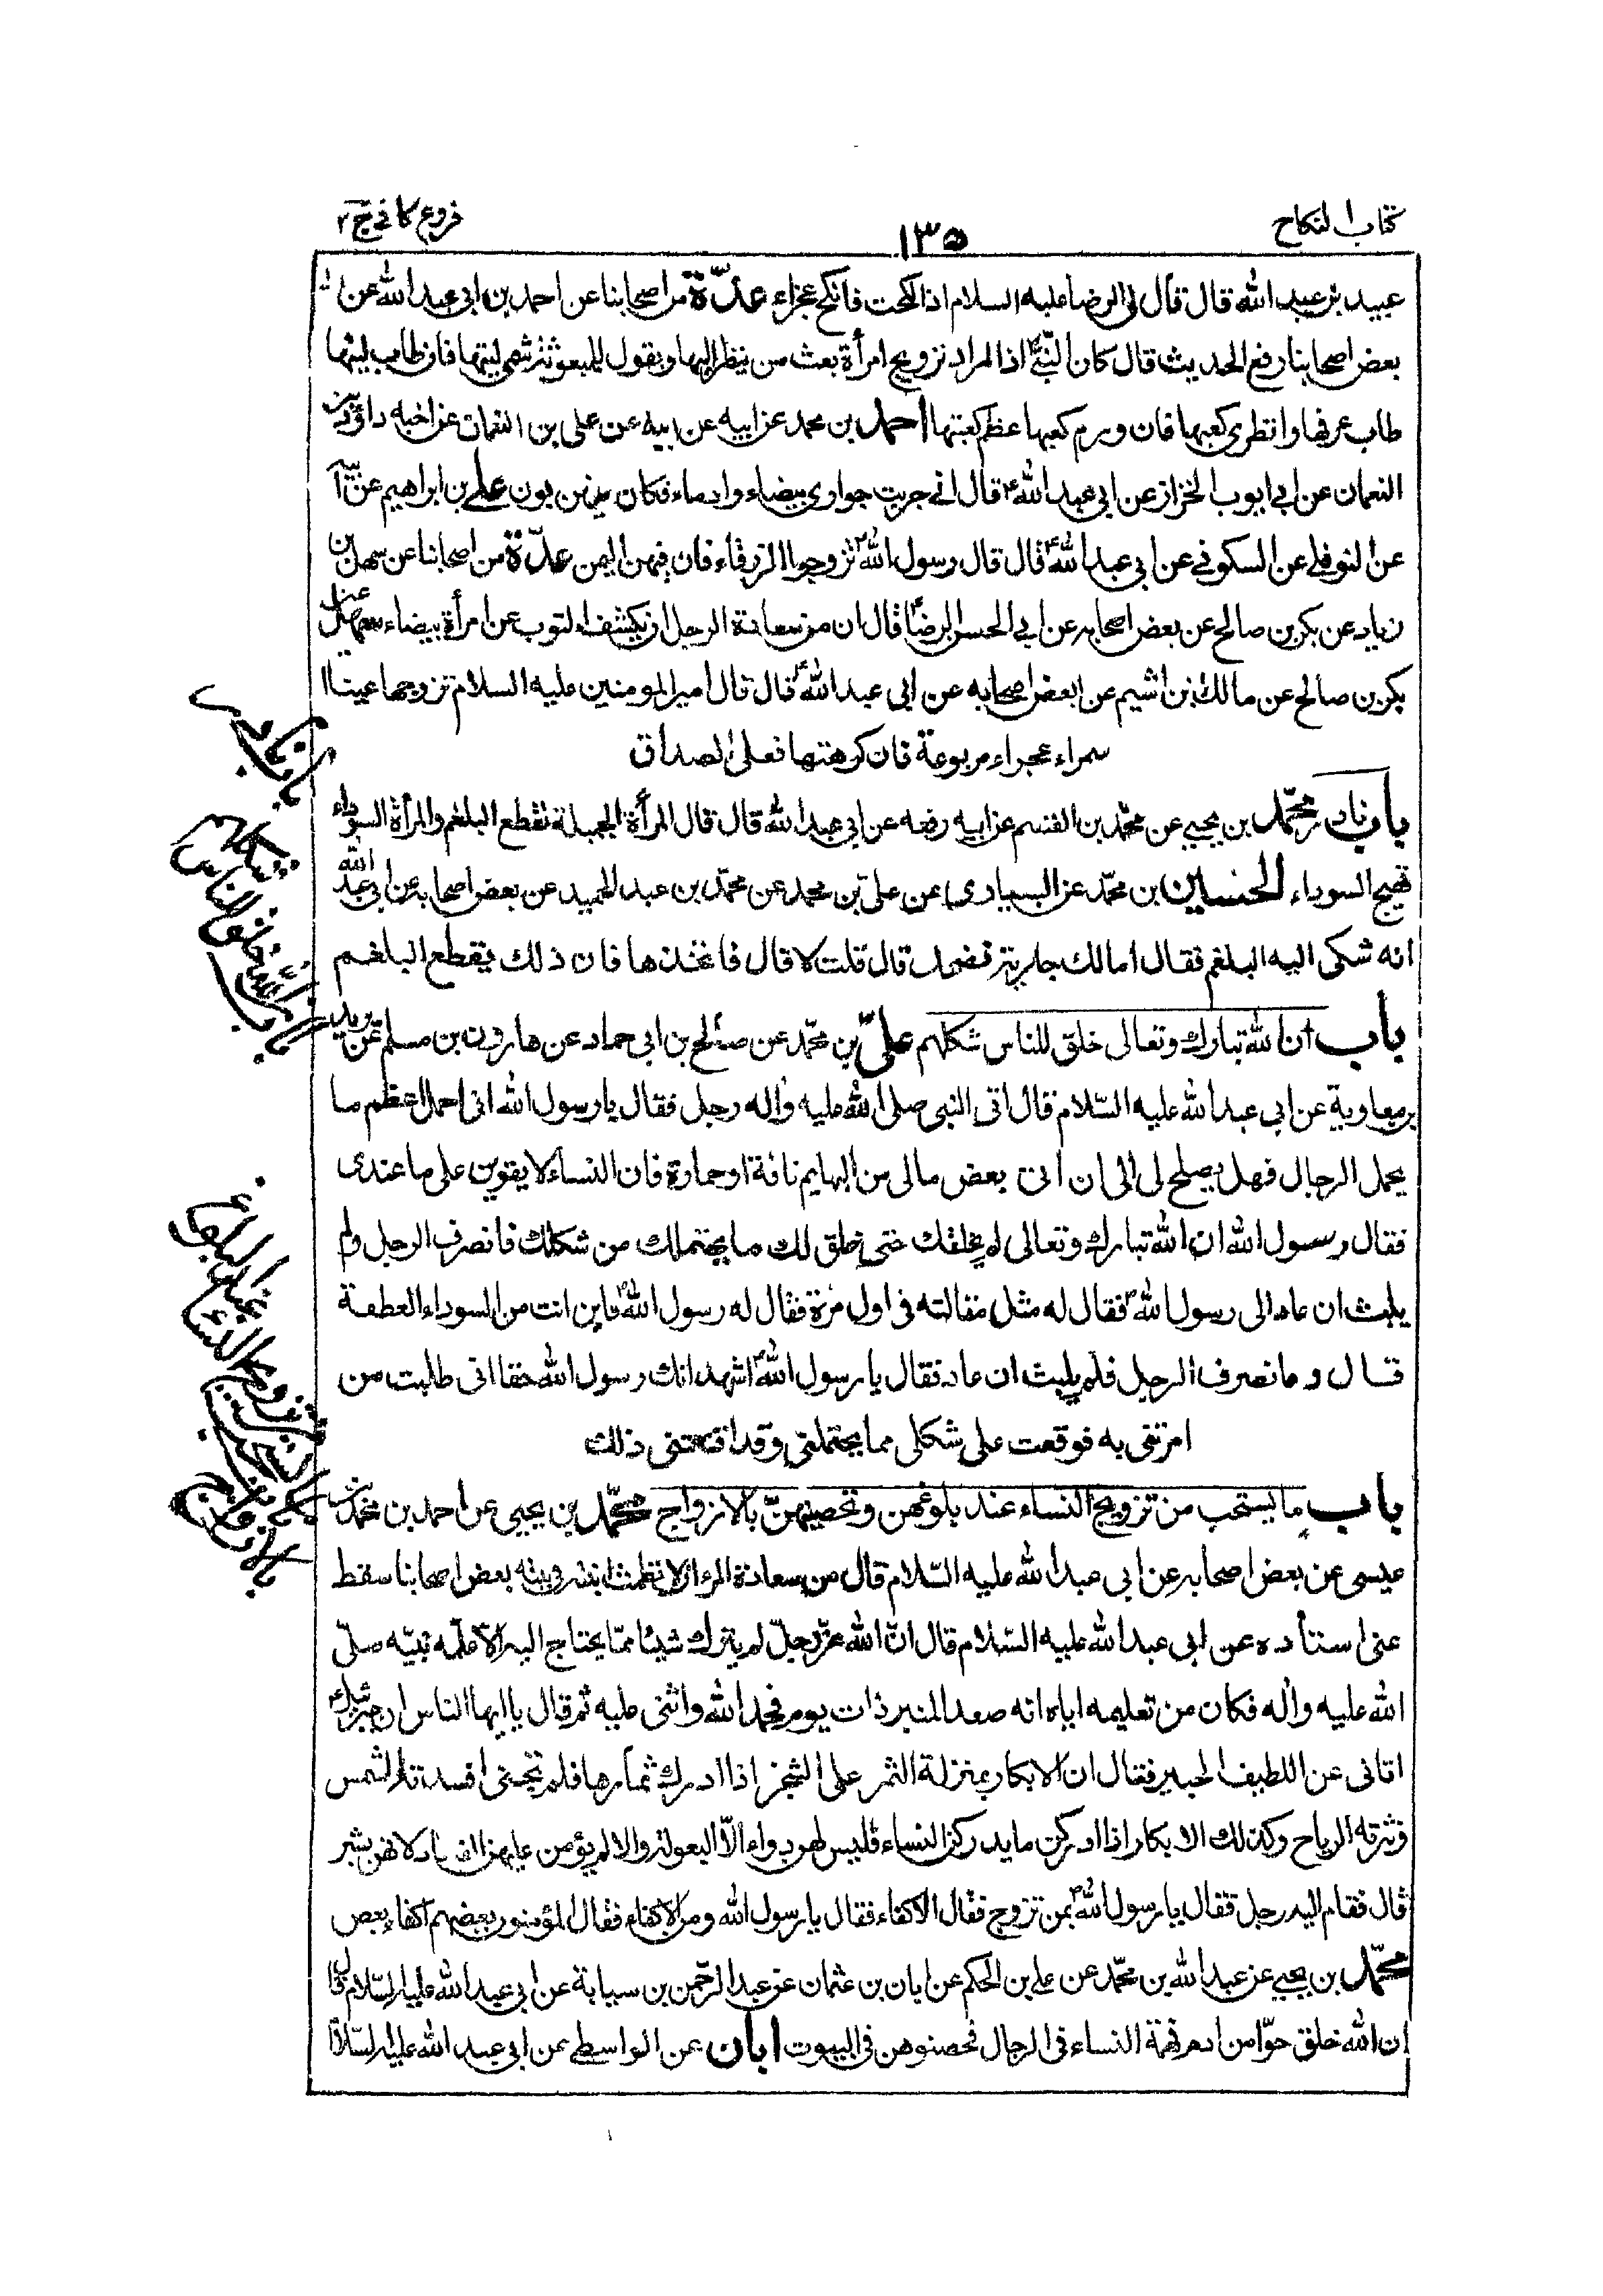 كتاب النكاح
١٣٥
فروع كافي ج ٢
عبيد بن عبد الله قال قال لي الرضا عليه السلام اذا نكحت فانكح عجزاء عدّة من اصحابنا عن احمد بن ابي عبد الله عن
بعض اصحابنا رفع الحديث قال كان النبيّ اذا اراد تزويج امرأة بعث من ينظر اليها ويقول للمبعوثة شمي ليتها فان طاب ليتها
طاب عرفها وانظري كعبها فان ورم كعبها عظم كعبتها احمد بن محمد عن ابيه عن ابيه عن علي بن النعمان عن اخيه داود بن
النعمان عن ابي ايوب الخزاز عن ابي عبد الله ع قال اني جربت جواري بيضاء وادماء فكان بينهن بون علي بن ابراهيم عن ابيه
عن النوفلي عن السكوني عن ابي عبد الله ع قال قال رسول الله ص تزوجوا الزرقاء فان فيهن اليمن عدّة من اصحابنا عن سهل بن
زياد عن بكر بن صالح عن بعض اصحابه عن ابي الحسن الرضا ع قال ان من سعادة الرجل ان يكشف الثوب عن امرأة بيضاء سهل عن
بكر بن صالح عن مالك بن اشيم عن بعض اصحابه عن ابي عبد الله ع قال قال امير المومنين عليه السلام تزوجها عيناا
سمراء عجزاء مربوعة فان كرهتها فعلى الصداق
باب نادر محمّد بن يحيى عن محمّد بن القسم عن ابيه رفعه عن ابي عبد الله قال قال المرأة الجميلة تقطع البلغم والمرأة السوداء
تهيج السوداء الحسين بن محمّد عن السياري عن علي بن محمد عن محمّد بن عبد الحميد عن بعض اصحابه عن ابي عبد الله
انه شكى اليه البلغم فقال امالك جارية تضحك قال قلت لا قال فاتخذها فان ذلك يقطع البلغم
باب ان الله تبارك وتعالى خلق للناس شكلهم عليّ بن محمّد عن صالح بن ابي حماد عن هارون بن مسلم عن بريد
بن معاوية عن ابي عبد الله عليه السّلام قال اتى النبي صلى الله عليه واله رجل فقال يا رسول الله اني احمل اعظم ما
يحمل الرجال فهل يصلح لي الى ان اتى بعض مالى من البهايم ناقة او حمارة فان النساء لا يقوين على ما عندى
فقال رسول الله ان الله تبارك وتعالى لم يخلقك حتى خلق لك ما يحتملك من شكلك فانصرف الرجل ولم
يلبث ان عاد الى رسول الله ص فقال له مثل مقالته في اول مرة فقال له رسول الله ص فاين انت من السوداء العطعة
قال وما نصرف الرجل فلم يلبث ان عاد فقال يا رسول الله ص اشهد انك رسول الله حقا اني طلبت من
امرتنى به فوقعت على شكلى مما يحتملنى وقد اقنعنى ذلك
باب ما يستحب من تزويج النساء عند بلوغهن وتحصينهنّ بالازواج محمّد بن يحيى عن احمد بن محمد بن
عيسى عن بعض اصحابه عن ابي عبد الله عليه السّلام قال من سعادة المرء ان لا تطمث ابنته في بيته بعض اصحابنا سقط
عنى اسناده عن ابي عبد الله عليه السّلام قال انّ الله عزّ وجلّ لم يترك شيئا ممّا يحتاج اليه الا علّمه نبيّه صلّى
الله عليه واله فكان من تعليمه اياه انه صعد المنبر ذات يوم فحمد الله واثنى عليه ثم قال يا ايها الناس ان جبرئيل
اتاني عن اللطيف الخبير فقال ان الابكار بمنزلة الثمر على الشجر اذا ادرك ثمارها فلم تجتنى افسدته الشمس
ونثرته الرياح وكذلك الابكار اذا ادركن ما يدركن النساء فليس لهن دواء الّا البعولة والا لم يؤمن عليهن الفساد لانهن بشر
قال فقام اليه رجل فقال يا رسول الله ص بمن تزوج فقال الاكفاء فقال يا رسول الله ومن الاكفاء فقال المؤمنون بعضهم اكفاء بعض
محمّد بن يحيى عن عبد الله بن محمّد عن علي بن الحكم عن ابان بن عثمان عن عبد الرحمن بن سيابة عن ابي عبد الله عليه السّلام قال
ان الله خلق حوّا من ادم فهمة النساء في الرجال فحصنوهن في البيوت ابان عن الواسطي عن ابي عبد الله عليه السّلام
باب نادر